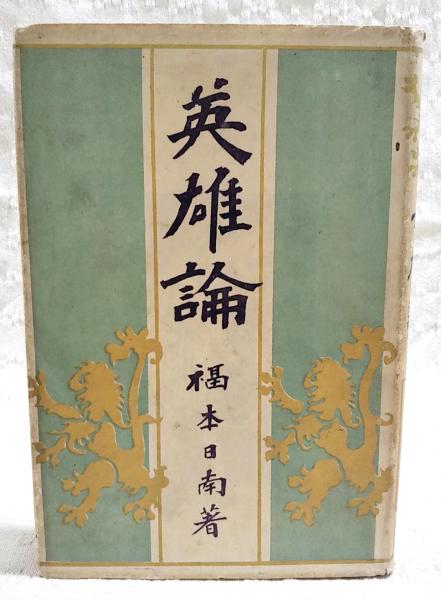 英雄論
福本日南著